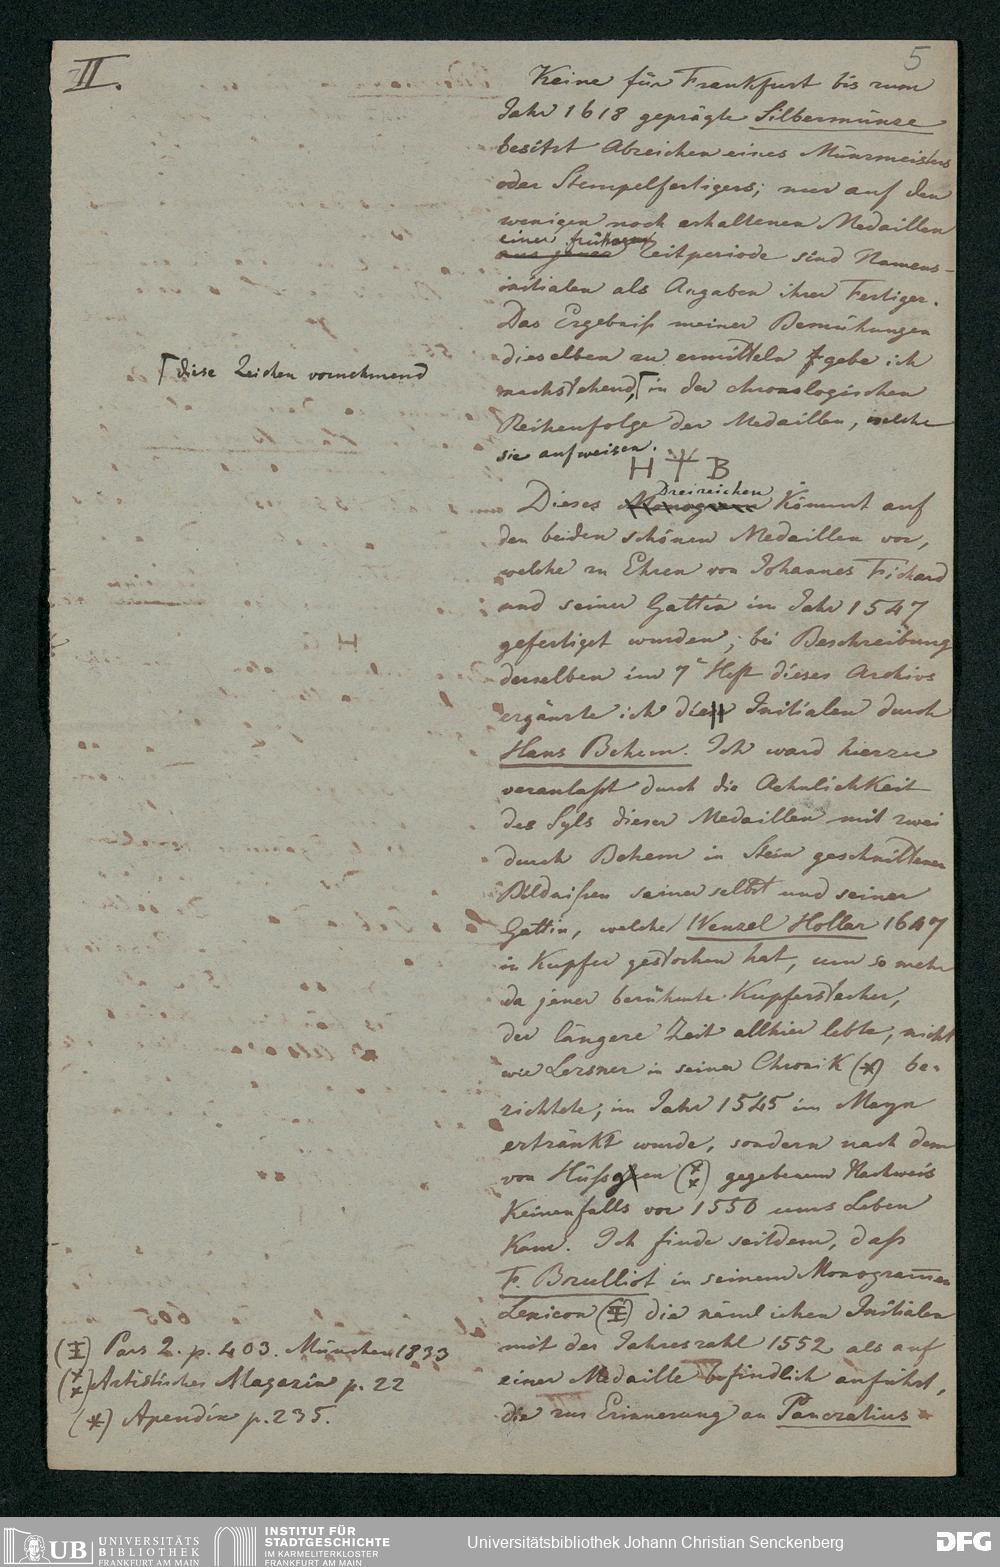 II.
5
Keine für Frankfurt bis zum
Jahr 1618 geprägte Silbermünze
besitzt Abzeichen eines Münzmeisters
oder Stempelfertigers; nur auf den
wenigen noch erhaltenen Medaillen
einer früheren
aus jener Zeitperiode sind Namens-
initialen als Angaben ihrer Fertiger.
Das Ergebniß meiner Bemühungen
dieselben zu ermitteln gebe ich
nachstehend, ⌈ in der chronologischen
⌈ diese Zeichen vornehmend
Reihenfolge der Medaillen, welche
sie aufweisen.
H B
Dreizeichen
Dieses Monogram kömmt auf
den beiden schönen Medaillen vor,
welche zu Ehren von Johannes Fichard
und seiner Gattin im Jahr 1547
gefertiget wurden; bei Beschreibung
derselben im 7r Heft dieses Archivs
ergänzte ich die Initialen durch
Hans Behem. Ich ward hierzu
veranlaßt durch die Aehnlichkeit
des Syls dieser Medaillen mit zwei
durch Behem in Stein geschnittenen
Bildnißen seiner selbst und seiner
Gattin, welche Wenzel Hollar 1647
in Kupfer gestochen hat, um so mehr
da jener berühmte Kupferstecher,
der längere Zeit allhier lebte, nicht
wie Lersner in seiner Chronik (*) be-
richtete, im Jahr 1545 im Mayn
ertränkt wurde, sondern nach dem
von Hüßgen (**) gegebenem Nachweis
Keinenfalls vor 1550 ums Leben
Kam. Ich finde seitdem, daß
F. Brulliot in seinem Monogramen
Lexicon (‡) die nämlichen Initialen
mit der Jahreszahl 1552 als auf
einer Medaille befindlich anführt,
die zur Erinnerung an Pancratius
(‡) Pars 2. p. 403. München 1833
(**) Artistisches Magazin p. 22
(*) Apendix p. 235.
UB UNIVERSITÄTS
BIBLIOTHEK
FRANKFURT AM MAIN
INSTITUT FÜR
STADTGESCHICHTE
IM KARMELITERKLOSTER
FRANKFURT AM MAIN
Universitätsbibliothek Johann Christian Senckenberg
DFG